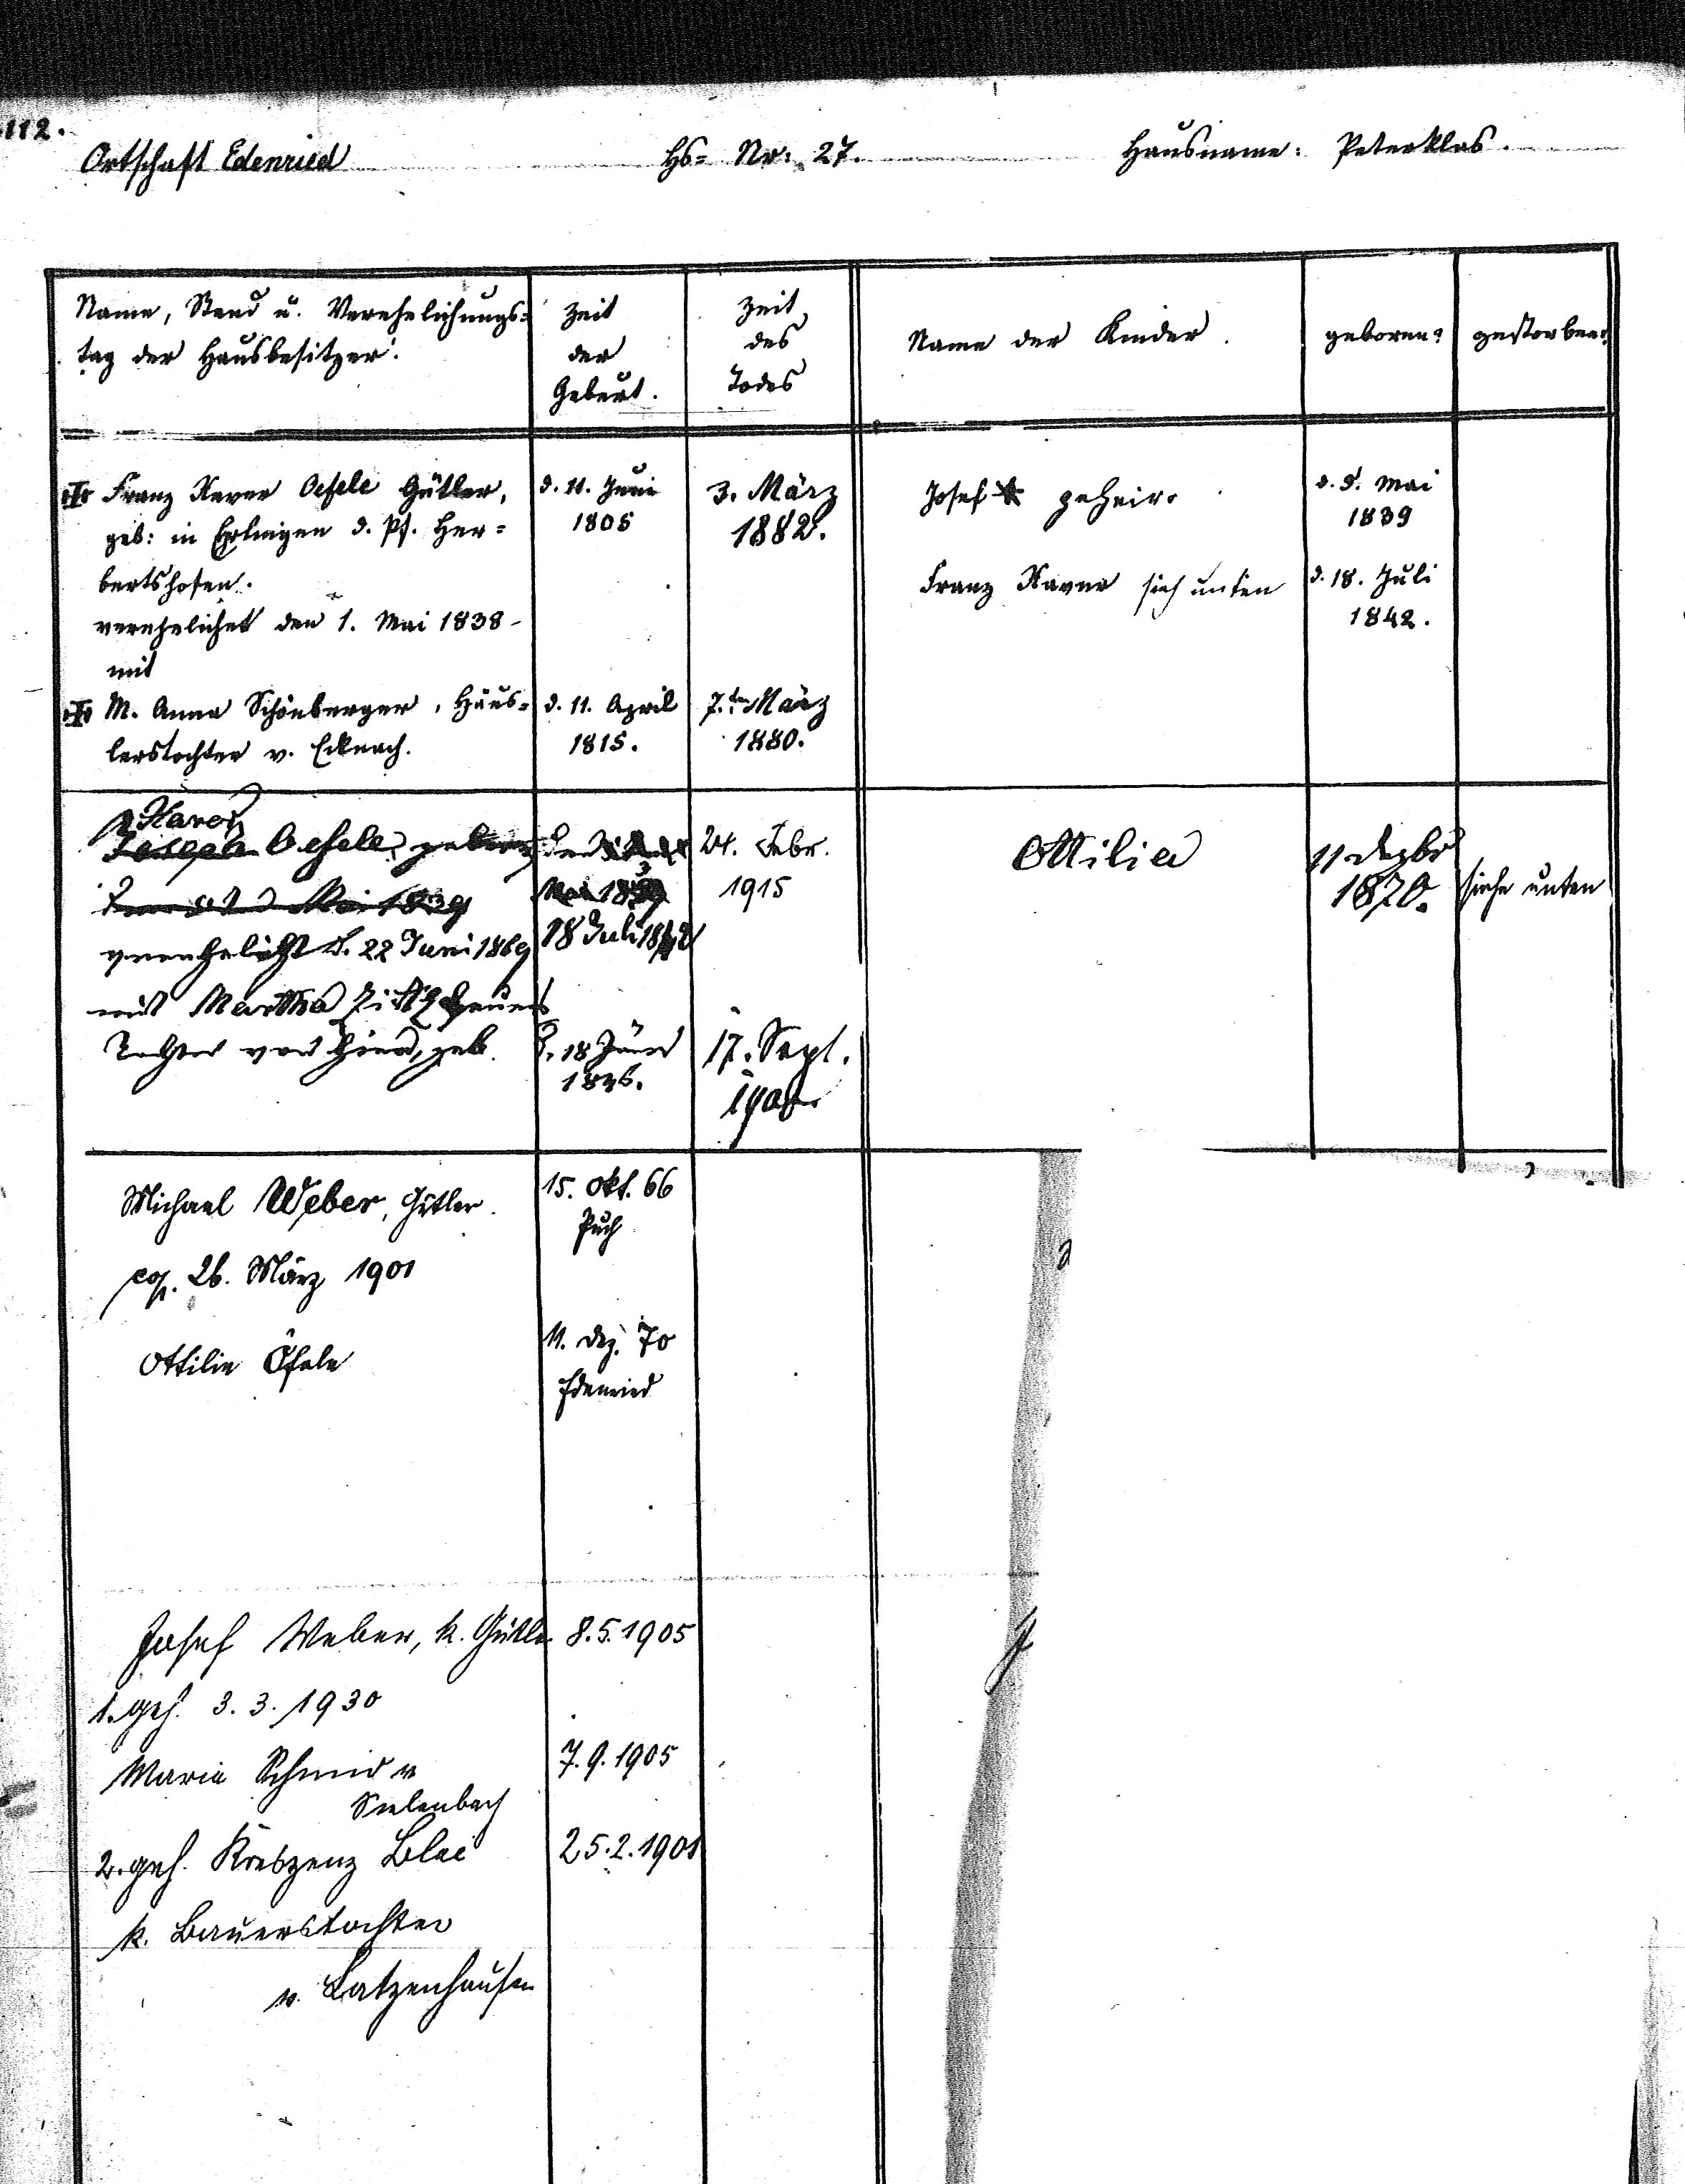 112.
Ortschaft Edenried Hs= Nr: 27. Hausname: Peterklas.
Name, Stand u. Verehelichungs=
tag der Hausbesitzer.
Zeit
der
Geburt.
Zeit
des
Todes
Name der Kinder.
geboren?
gestorben?
Franz Xaver Oefele Gütler,
geb: in Erlingen d. Pf. Her=
bertshofen.
verehelichet den 1. Mai 1838
mit
d. 11. Juni
1805
3. März
1882.
Josef geheir.
d. 5. Mai
1839
Franz Xaver sieh unten
d. 18. Juli
1842.
M. Anna Schönberger, Häus=
lerstochter v. Ecknach.
d. 11. April
1815.
7. März
1880.
Xaver
Joseph Oefele, geboren
Mai 1839
verehelicht d. 22 Juni 1869
mit Martha
Tochter von hier, geb.
Mai 1839
18 Juli 1842
d. 18
1846.
24. Febr.
1915
17. Sept.
Ottilia
11 Dezbr
1870.
siehe unten
Michael Weber, Gütler.
cop. 26. März 1901
Ottilie Öfele
15. Okt. 66
Puch
11. Dez. 70
Edenried
Josef Weber, k. Gütler
1. geh. 3. 3. 1930
Maria Schmid v
Sielenbach
2. geh. Kreszenz
k. Bauerstochter
v. Latzenhausen
8. 5. 1905
7. 9. 1905
25. 2. 1901